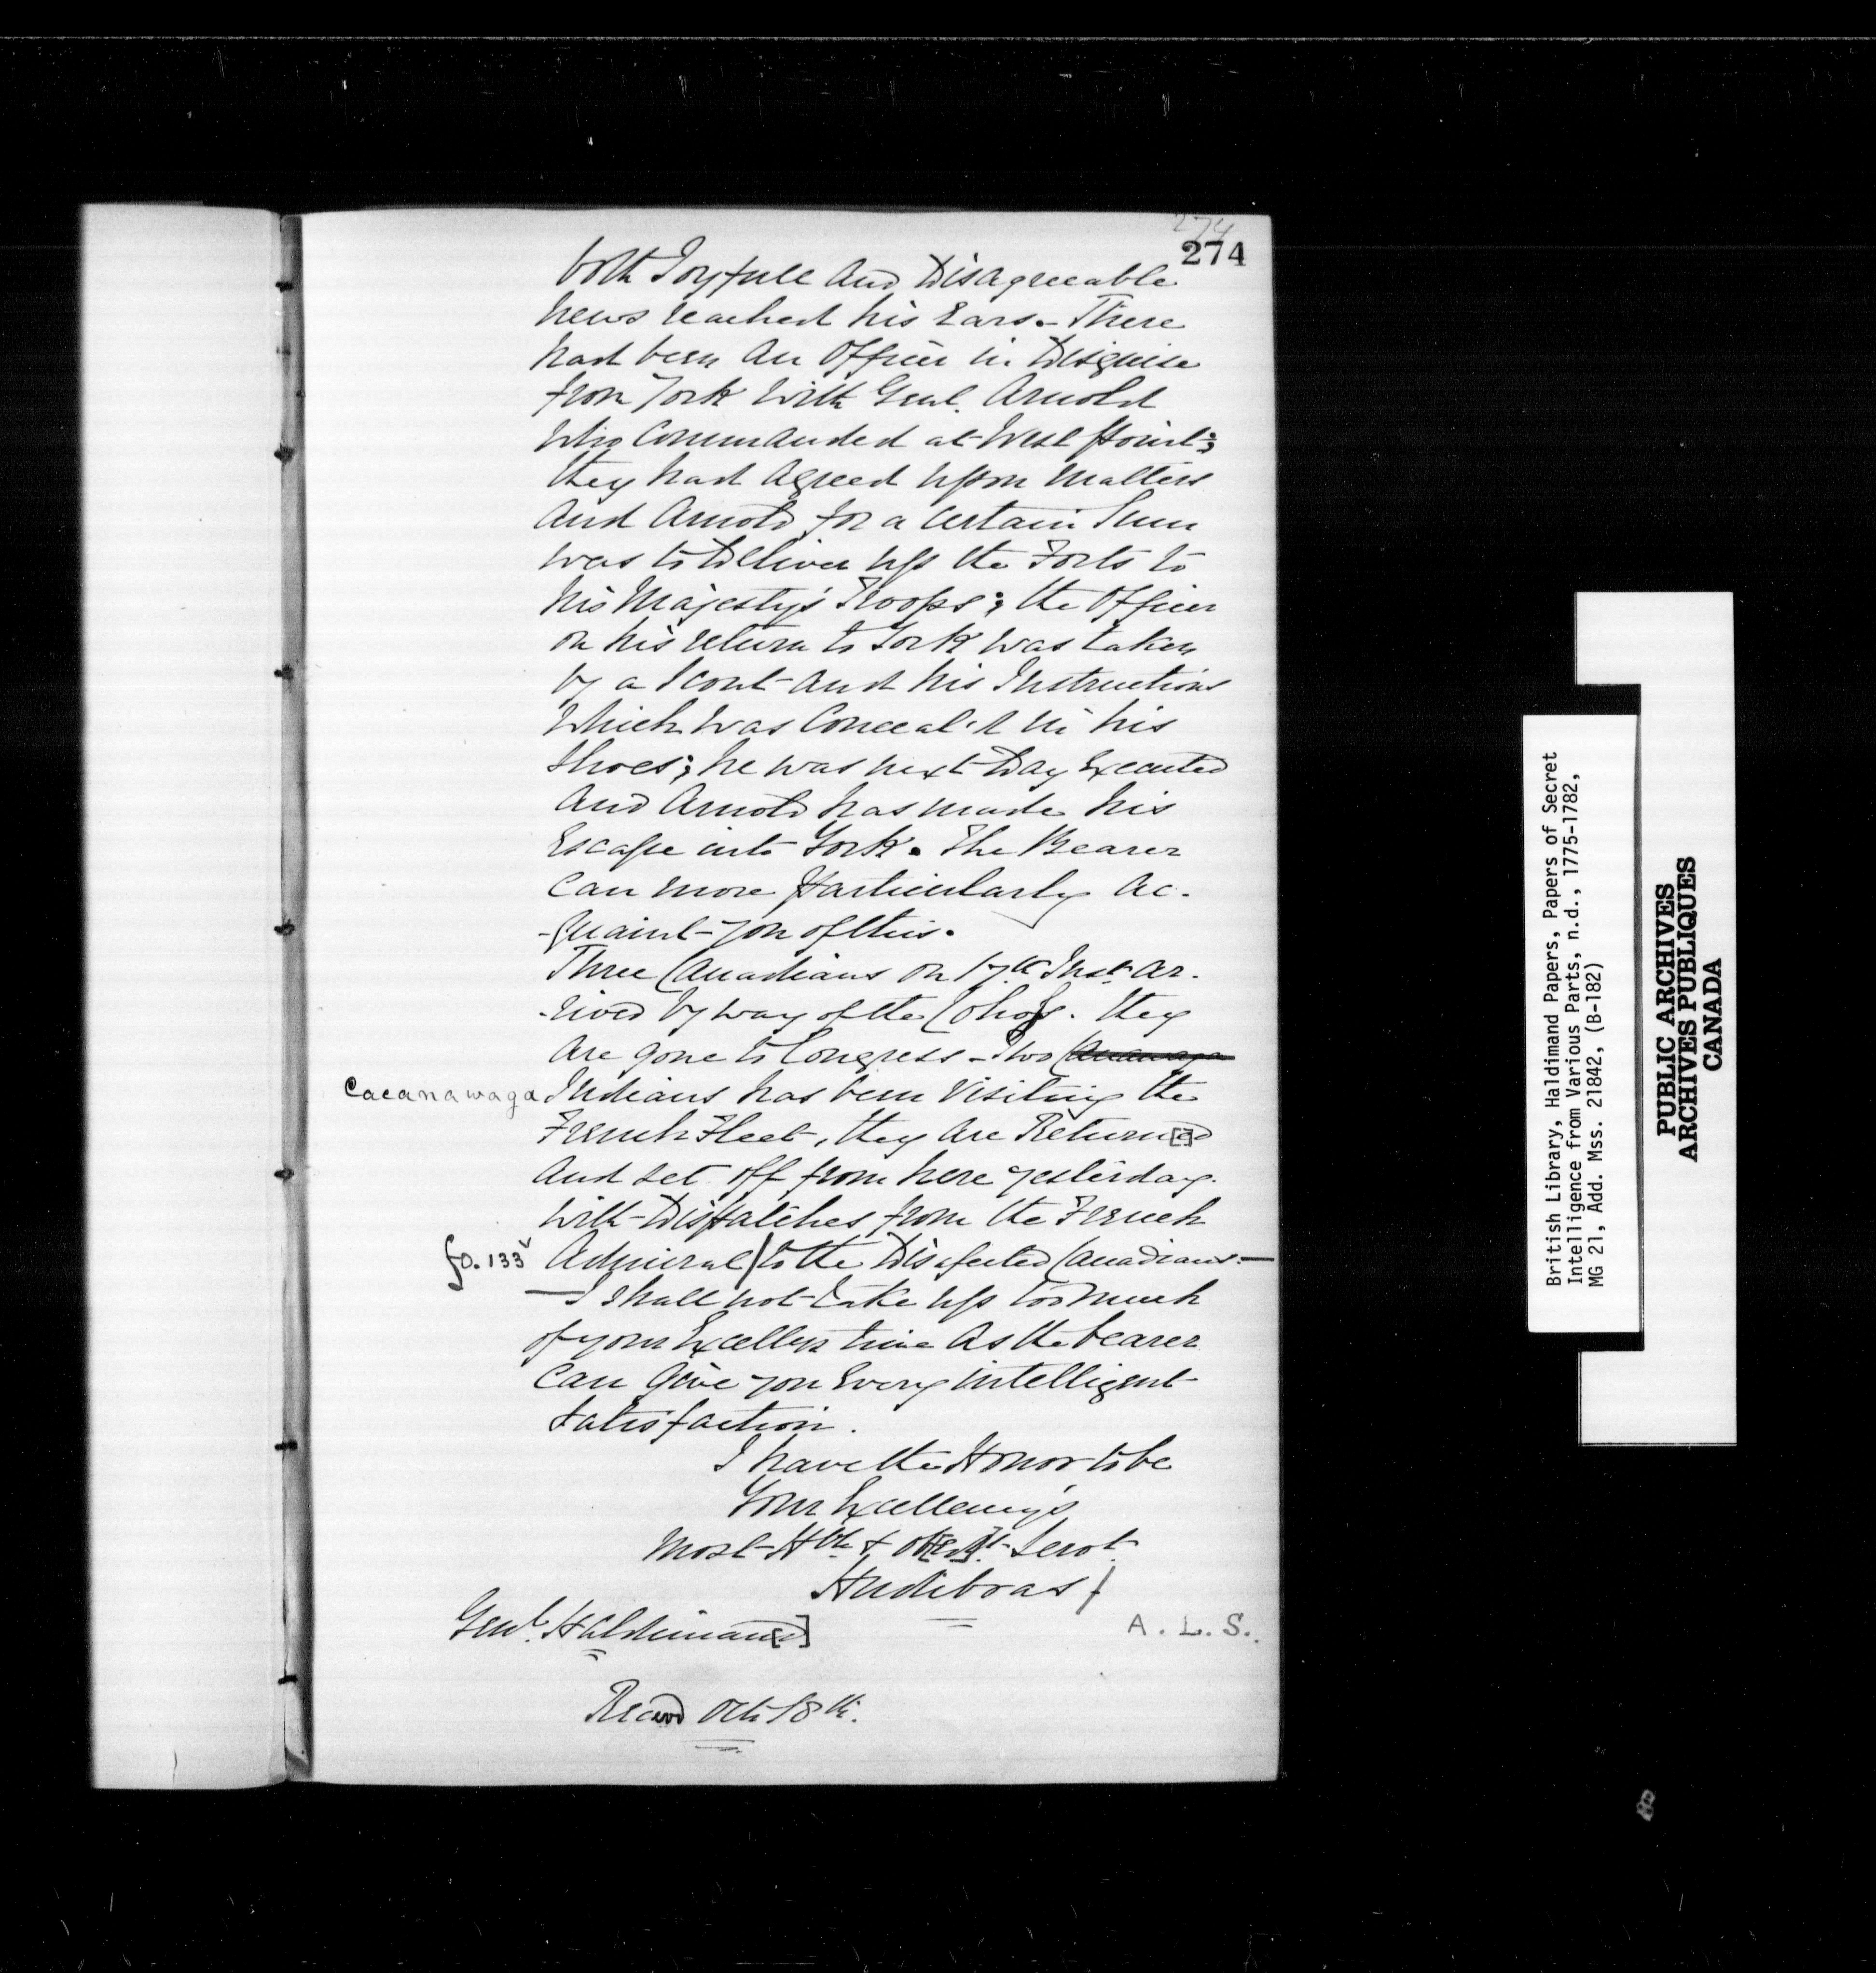 274
274
both Joyfull And Disagreeable
news reached his Ears. - There
had been An Officer in Disguise
from York with Genl. Arnold
who Commanded at West Point;
they had Agreed upon Matters
And Arnold for a certain Sum
was to Deliver up the Forts to
his Majesty's Troops; the Officer
on his return to York was taken
by a Scout and his Instructions
Which was Conceal'd in his
Shoes; he was next Day Executed
And Arnold has made his
Escape into York. The Bearer
Can more Particularly Ac-
-quaint you of this.
Three Canadians on 17th Inst. Ar-
-rived by way of the Cohos. They
Are gone to Congress - Two
Cacanawaga Indians has been Visiting the
French Fleet, they Are Return[e]d
And set off from here yesterday
with Dispatches from the French
fo. 133v Admiral / to the Disafected Canadians. —
— I shall not take up too much
of your Excellys time As the bearer
Can Give you Every intelligent
Satisfaction.
I have the Honor to be
Your Excellency's
Most Hble & Obedt. Servt.
Hudibras /
Genl. Haldiman[d]
A. L. S.
Recd Octr 18th.
British Library, Haldimand Papers, Papers of Secret
Intelligence from Various Parts, n.d., 1775-1782,
MG 21, Add. Mss. 21842, (B-182)
PUBLIC ARCHIVES
ARCHIVES PUBLIQUES
CANADA